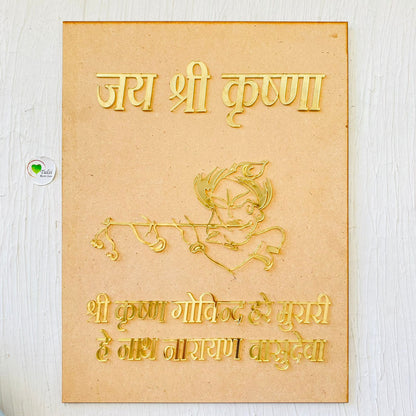 जय श्री कृष्णा
Tulsi
श्री कृष्ण गोविन्द हरे मुरारी
हे नाथ नारायण वासुदेवा